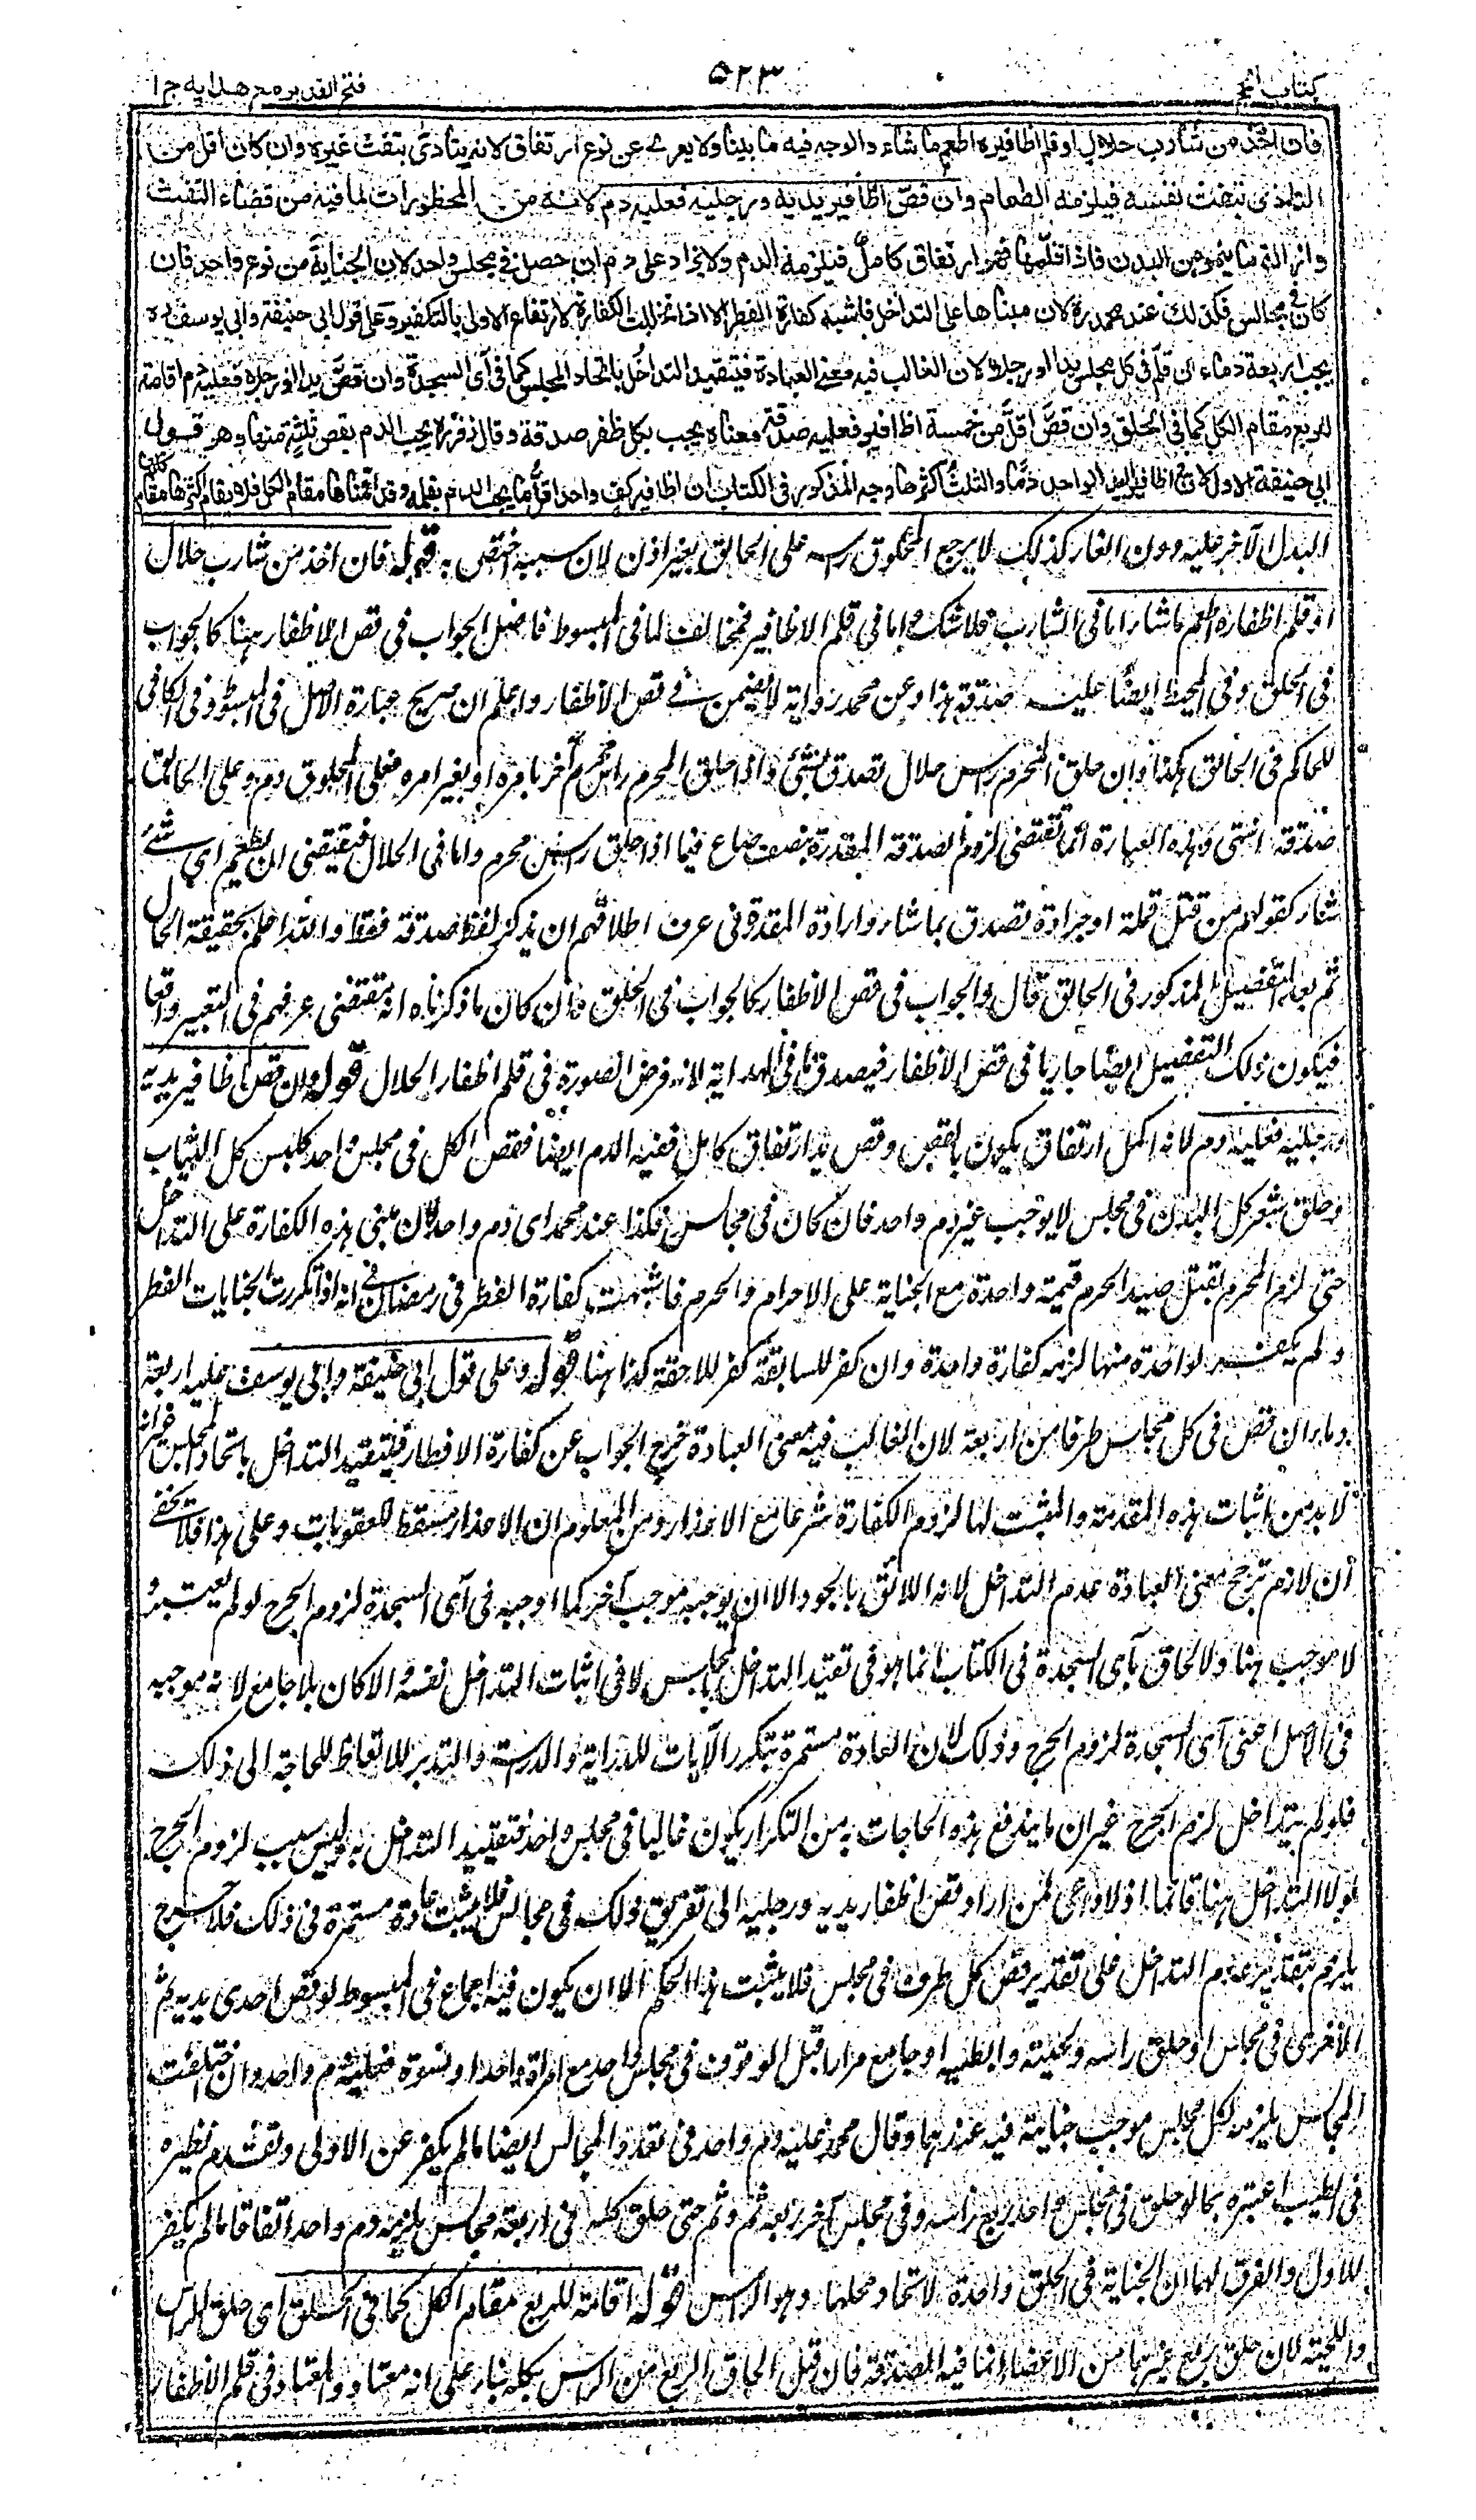 كتاب الحج
۵۲۳
فتح القدير مع هدايه ج ا
فان اخذ من شارب حلال او قلم اظافيره اطعم ما شاء والوجه فيه ما بينا ولا يعرى عن نوع ارتفاق لانه يتأذى بتفث غيره وان كان اقل من
التأذى بتفث نفسه فيلزمه الطعام وان قص اظافير يديه ورجليه فعليه دم لانه من المحظورات لما فيه من قضاء التفث
وازالة ما ينمو من البدن فاذا قلمها فهو ارتفاق كامل فيلزمه الدم ولا يزاد على دم ان حصل في مجلس واحد لان الجناية من نوع واحد فان
كان في مجالس فكذلك عند محمد ره لان مبناها على التداخل فاشبه كفارة الفطر الا اذا تخللت الكفارة لارتفاع الاولى بالتكفير وعلى قول ابى حنيفة وابى يوسف ره
يجب اربعة دماء ان قلم في كل مجلس يدا او رجلا لان الغالب فيه معنى العبادة فيتقيد التداخل باتحاد المجلس كما في آى السجدة وان قص يدا او رجلا فعليه دم اقامة
للربع مقام الكل كما في الحلق وان قص اقل من خمسة اظافير فعليه صدقة معناه يجب بكل ظفر صدقة وقال زفر ره يجب الدم بقص ثلثة منها وهو قول
ابى حنيفة الاول لان في اظافير اليد الواحد دما والثلث اكثرها وجه المذكور في الكتاب ان اظافير كف واحد اقل ما يجب الدم بقلمه وقد اقمناها مقام الكل فلا يقام اكثرها مقام كلها
البدل الآخر عليه دون الغار كذلك لا يرجع المحلوق رأسه على الحالق بغير اذن لان سببه اختص به قوله فان اخذ من شارب حلال
او قلم اظفاره اطعم ما شاء اما فى الشارب فلا شك واما فى قلم الاظافير فمخالف لما فى المبسوط فاصل الجواب فى قص الاظفار هنا كالجواب
فى الحلق وفى المحيط ايضا عليه صدقة هذا وعن محمد رواية لا يضمن فى قص الاظفار واعلم ان صريح عبارة الاصل فى المبسوط وفى الكافى
للحاكم فى الحالق هكذا وان حلق المحرم رأس حلال تصدق بشئ واذا حلق المحرم رأس محرم آخر بامره او بغير امره فعلى المحلوق دم وعلى الحالق
صدقة انتهى وهذه العبارة انما تقتضى لزوم الصدقة المقدرة بنصف صاع فيما اذا حلق رأس محرم واما فى الحلال فيقتضى ان يطعم اى شئ
شاء كقولهم من قتل قملة او جرادة تصدق بما شاء وارادة المقدرة فى عرف اطلاقهم ان يذكر لفظ صدقة فقط والله اعلم بحقيقة الحال
ثم بعد التفصيل المذكور فى الحالق قال والجواب فى قص الاظفار كالجواب فى الحلق فان كان ما ذكرناه انه مقتضى عرفهم فى التعبير واقعا
فيكون ذلك التفصيل ايضا جاريا فى قص الاظفار فيصدق ما فى الهداية لانه فرض الصورة فى قلم اظفار الحلال قوله وان قص اظافير يديه
ورجليه فعليه دم لانه اكمل ارتفاق يكون بالقص وقص يد ارتفاق كامل ففيه الدم ايضا فقص الكل فى مجلس واحد كلبس كل الثياب
وحلق شعر كل البدن فى مجلس لا يوجب غير دم واحد فان كان فى مجالس فكذا عند محمد اى دم واحد لان مبنى هذه الكفارة على التداخل
حتى لزم المحرم بقتل صيد الحرم قيمة واحدة مع الجناية على الاحرام والحرم فاشبهت كفارة الفطر فى رمضان فى انه اذا تكررت الجنايات الفطر
ولم يكفر لواحدة منها لزمه كفارة واحدة وان كفر للسابقة كفر للاحقة كذا هنا قوله وعلى قول ابى حنيفة وابى يوسف عليه اربعة
دماء ان قص فى كل مجلس طرفا من اربعة لان الغالب فيه معنى العبادة خرج الجواب عن كفارة الافطار فيتقيد التداخل باتحاد المجلس غير انه
لا بد من اثبات هذه المقدمة والمثبت لها لزوم الكفارة شرعا مع الاعذار ومن المعلوم ان الاعذار مسقطة للعقوبات وعلى هذا فلا يخفى
ان لازم ترجح معنى العبادة عدم التداخل لانه اللائق بالجود الا ان يوجبه موجب آخر كما اوجبه فى آى السجدة لزوم الحرج لو لم يعتبر و
لا موجب هنا والالحاق بآى السجدة فى الكتاب انما هو فى تقييد التداخل بالمجلس لا فى اثبات التداخل نفسه والا كان بلا جامع لانه موجبه
فى الاصل اعنى آى السجدة لزوم الحرج وذلك لان العادة مستمرة بتكرر الآيات للدراية والدرسة والتدبر للاتعاظ للحاجة الى ذلك
فلو لم يتداخل لزم الحرج غير ان ما يندفع هذه الحاجات به من التكرار يكون غاليا فى مجلس واحد فتقييد التداخل به وليس سبب لزوم الحرج
لولا التداخل هنا قائما اذ لا داعى لمن اراد قص اظفار يديه ورجليه الى تفريق ذلك فى مجالس فلا يثبت عادة مستمرة فى ذلك فلا حرج
يلزم بتقدير عدم التداخل على تقدير قص كل طرف فى مجلس فلا يثبت هذا الحكم الا ان يكون فيه اجماع فى المبسوط لو قص احدى يديه ثم
الاخرى فى مجلس او حلق رأسه ولحيته وابطيه او جامع مرارا قبل الوقوف فى مجلس واحد مع امرأة واحدة او نسوة فعليه دم واحد وان اختلفت
المجالس يلزمه لكل مجلس موجب جنايته فيه عندهما وقال محمد عليه دم واحد فى تعدد المجالس ايضا ما لم يكفر عن الاولى وتقدم نظيره
فى الطيب اعتبره بما لو حلق فى مجلس واحد ربع رأسه وفى مجلس آخر ربعه ثم وثم حتى حلق كله فى اربعة مجالس يلزمه دم واحد اتفاقا ما لم يكفر
للاول والفرق لهما ان الجناية فى الحلق واحدة لاتحاد محلها وهو الرأس قوله اقامة للربع مقام الكل كما فى الحلق اى حلق الرأس
واللحية لان حلق ربع غيرهما من الاعضاء انما فيه الصدقة فان قيل الحاق الربع من الرأس بكله بناء على انه معتاد والمعتاد فى قلم الاظفار